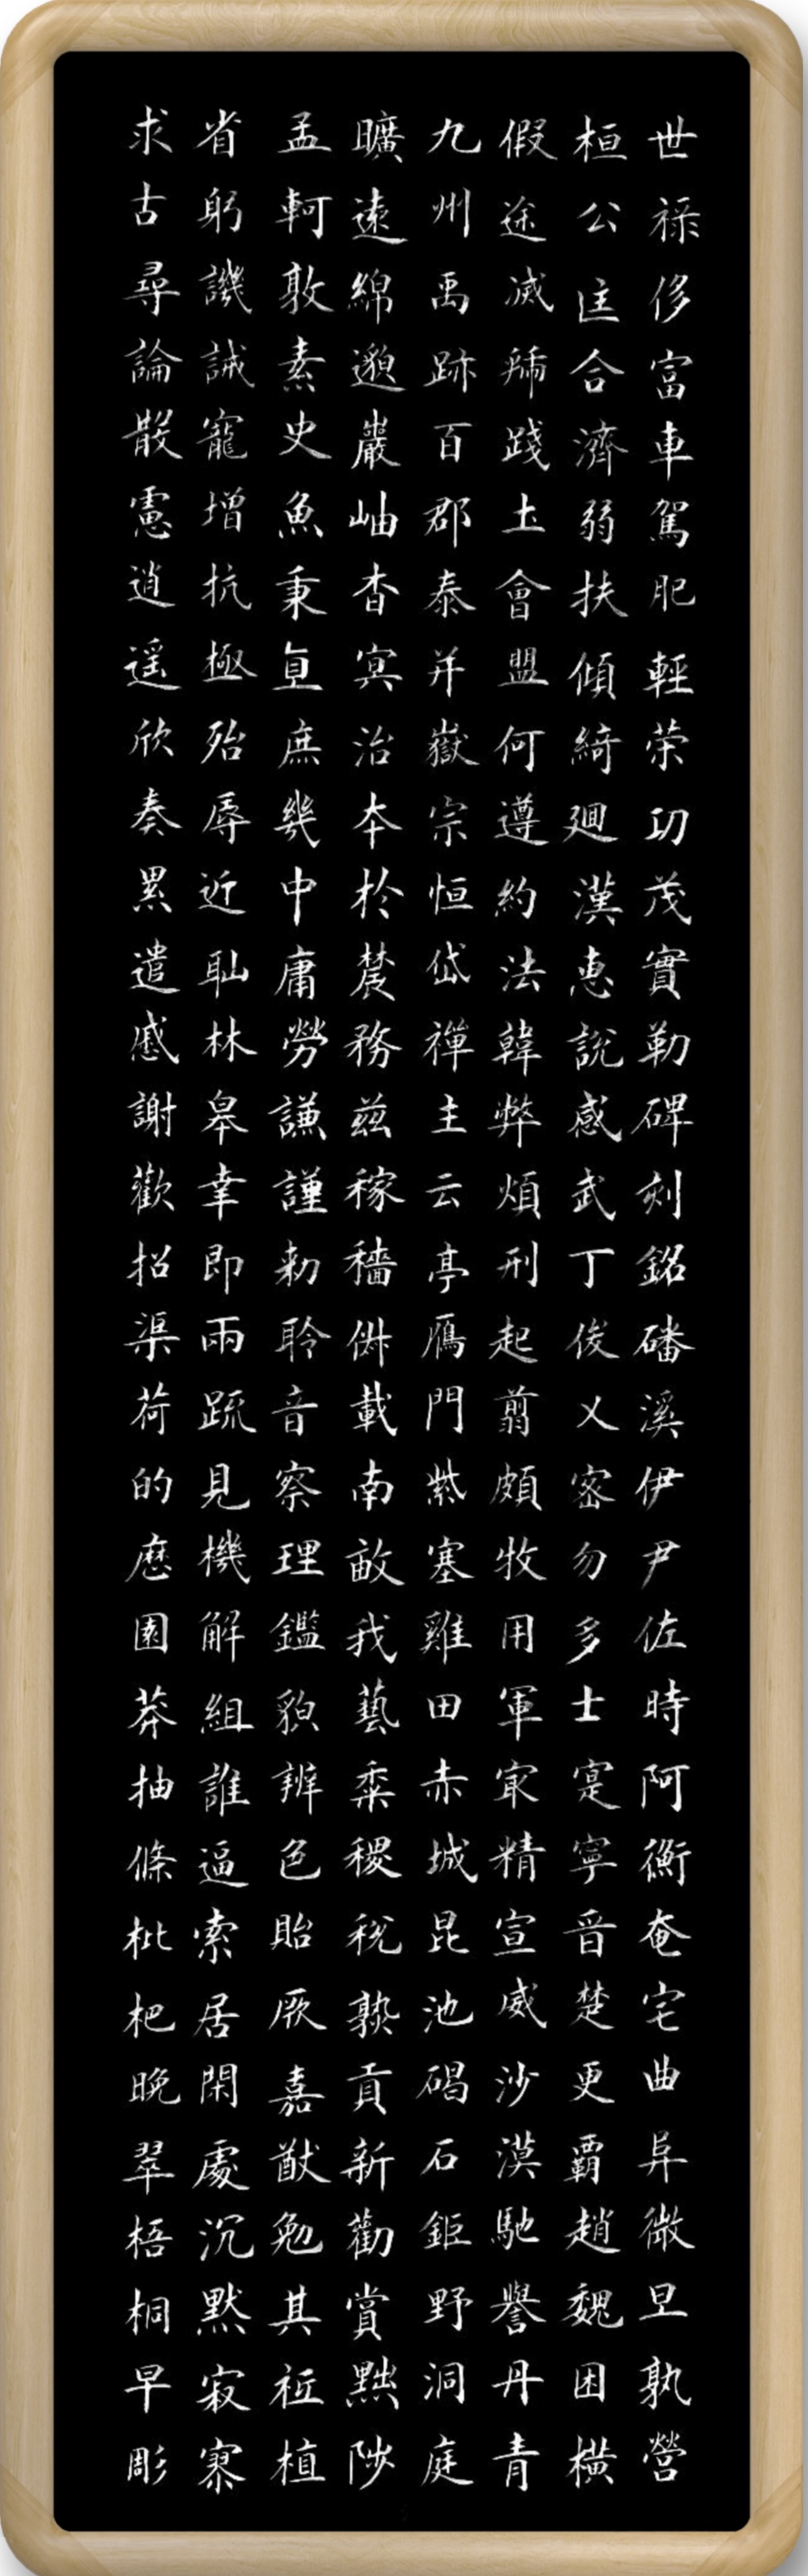 世禄侈富車駕肥輕荣功茂實勒碑刻銘磻溪伊尹佐時阿衡奄宅曲阜微旦孰營
桓公匡合濟弱扶傾綺迴漢恵說感武丁俊乂密勿多士寔寧晉楚更覇趙魏困橫
假途滅虢踐土會盟何遵約法韓弊煩刑起翦頗牧用軍宼精宣威沙漠馳譽丹青
九州禹跡百郡秦并嶽宗恒岱禪主云亭鴈門紫塞雞田赤城昆池碣石鉅野洞庭
曠遠綿邈巖岫杳冥治本於農務茲稼穡俶載南畝我藝黍稷稅熟貢新勸賞黜陟
孟軻敦素史魚秉直庶幾中庸勞謙謹勅聆音察理鑑貌辨色貽厥嘉猷勉其祗植
省躬譏誡寵增抗極殆辱近耻林皋幸即兩疏見機解組誰逼索居閑處沉默寂寥
求古尋論散慮逍遥欣奏累遣慼謝歡招渠荷的歷園莽抽條枇杷晚翠梧桐早彫